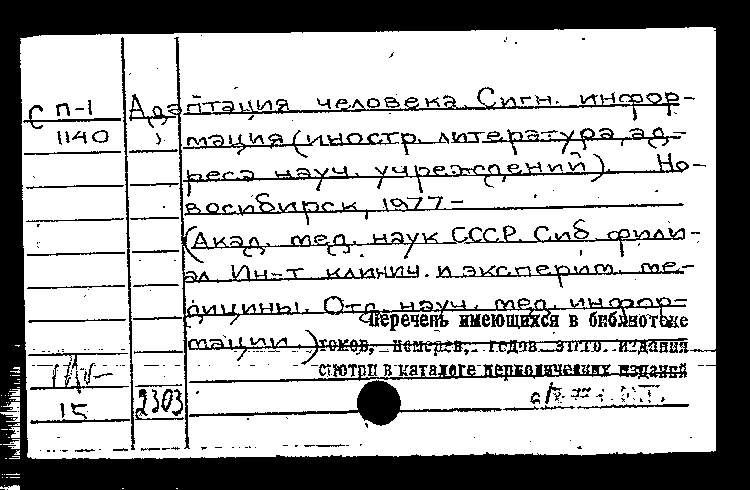 С П-1 Адаптация человека. Сигн. инфор-
1140 мация (иностр. литература, ад-
реса науч. учреждений). Но-
восибирск, 1977-
(Акад. мед. наук СССР. Сиб. фили-
ал. Ин-т клинич. и эксперим. ме-
дицины. Отд. науч. мед. инфор-
мации.)
Перечень имеющихся в библиотеке
томов, номеров, годов этого издания
смотри в каталоге периодических изданий
15 2303